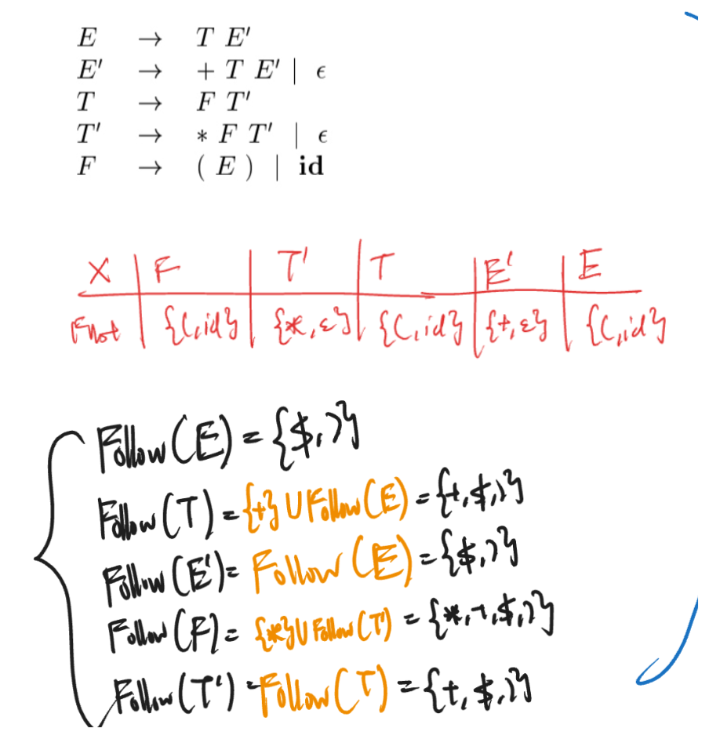 E → T E′
E′ → + T E′ | ϵ
T → F T′
T′ → * F T′ | ϵ
F → ( E ) | id
X | F | T' | T | E' | E
First | {(,id} | {*,ε} | {(,id} | {+,ε} | {(,id}
Follow(E) = {$,)}
Follow(T) = {+} ∪ Follow(E) = {+,$,)}
Follow(E') = Follow(E) = {$,)}
Follow(F) = {*} ∪ Follow(T') = {*,+,$,)}
Follow(T') = Follow(T) = {+,$,)}